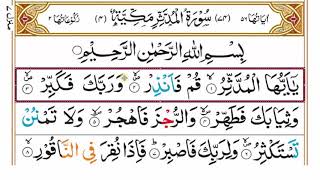 اٰيَاتُهَا ٥٦ (٧٤) سُوْرَةُ الْمُدَّثِّرِ مَكِّيَّةٌ (٤) رُكُوْعَاتُهَا ٢
بِسْمِ اللّٰهِ الرَّحْمٰنِ الرَّحِيْمِ
يٰۤاَيُّهَا الْمُدَّثِّرُ ۙ﴿١﴾ قُمْ فَاَنْذِرْ ۙ﴿٢﴾ وَرَبَّكَ فَكَبِّرْ ۙ﴿٣﴾
وَثِيَابَكَ فَطَهِّرْ ۙ﴿٤﴾ وَالرُّجْزَ فَاهْجُرْ ۙ﴿٥﴾ وَلَا تَمْنُنْ
تَسْتَكْثِرُ ۙ﴿٦﴾ وَلِرَبِّكَ فَاصْبِرْ ؕ﴿٧﴾ فَاِذَا نُقِرَ فِي النَّاقُوْرِ ۙ﴿٨﴾